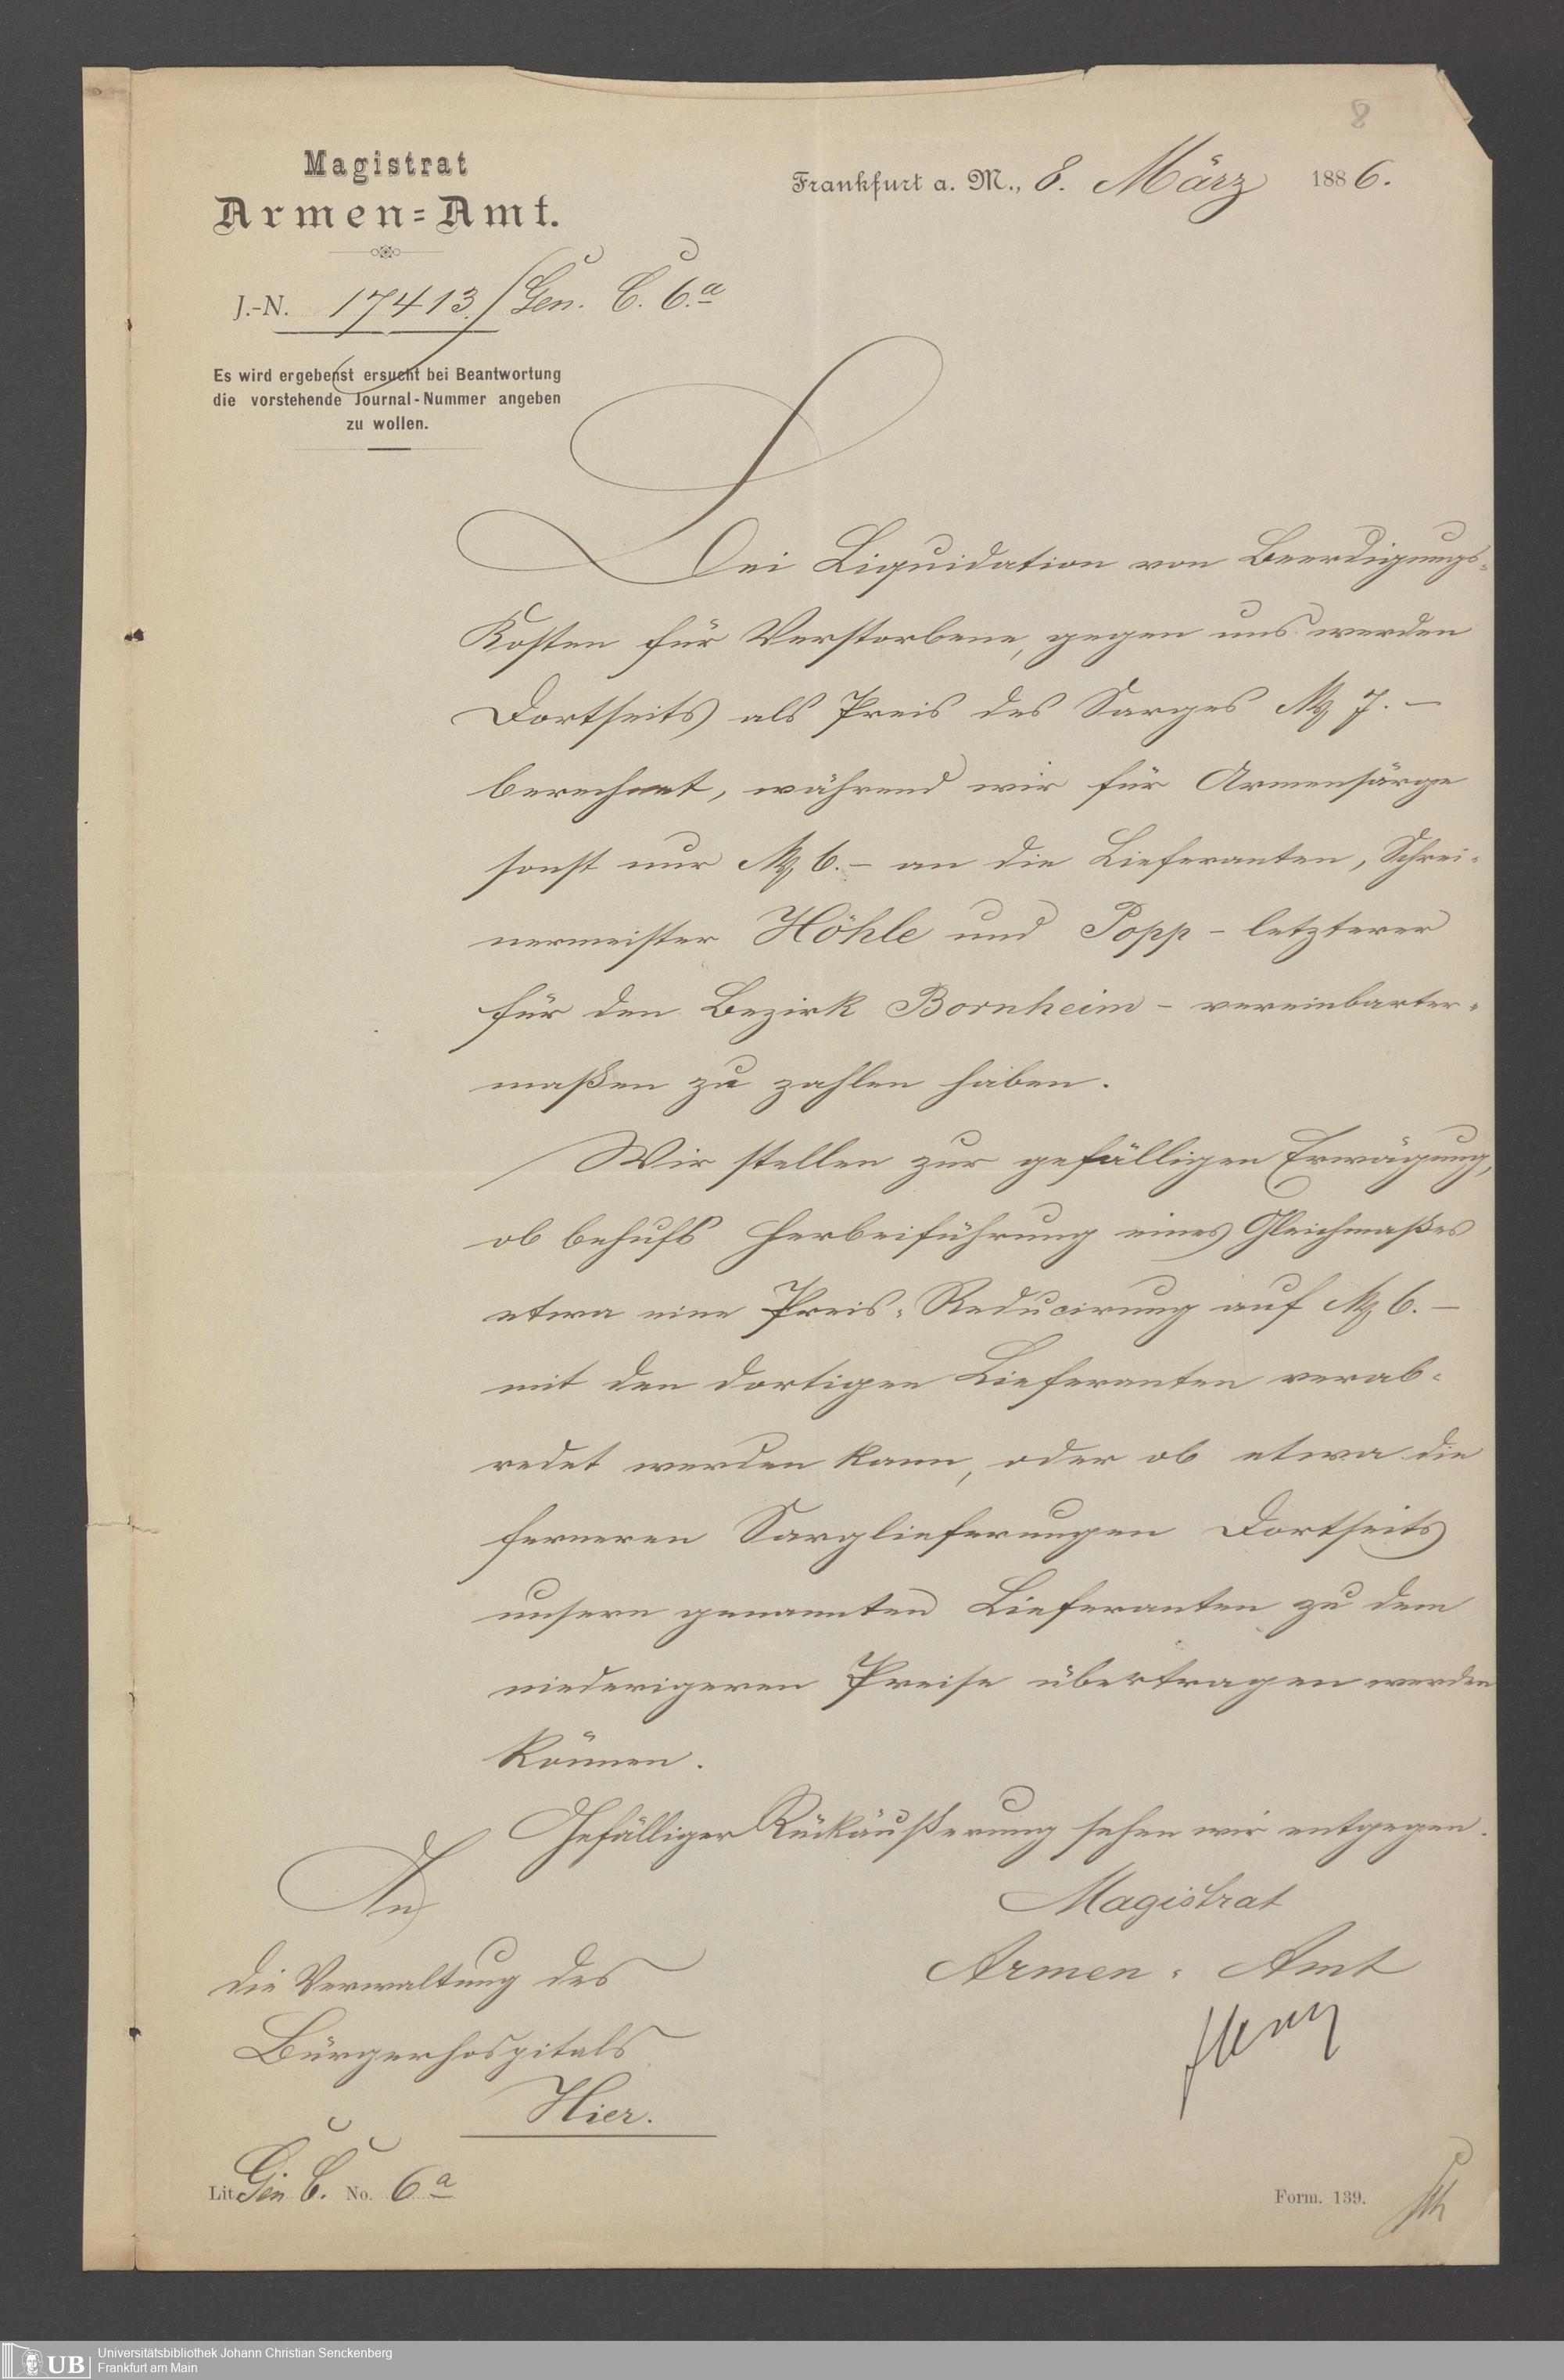 8
Magistrat
Armen=Amt.
Frankfurt a. M., 8. März 1886.
J.-N. 17413./Gen. C. 6.a
Es wird ergebenst ersucht bei Beantwortung
die vorstehende Journal-Nummer angeben
zu wollen.
Bei Liquidation von Beerdigungs-
Kosten für Verstorbene, gegen uns werden
dortseits als Preis des Sarges M 7.–
berechnet, während wir für Armensärge
sonst nur M 6.– an die Lieferanten, Schrei-
nermeister Höhle und Popp – letzterer
für den Bezirk Bornheim – vereinbarter-
maßen zu zahlen haben.
Wir stellen zur gefälligen Erwägung,
ob behufs Herbeiführung eines Gleichmaßes
etwa eine Preis-Reducirung auf M 6.–
mit den dortigen Lieferanten verab-
redet werden kann, oder ob etwa die
ferneren Sarglieferungen dortseits
unsern genannten Lieferanten zu dem
niederigeren Preise übertragen werden
können.
Gefälliger Rückäußerung sehen wir entgegen.
Magistrat
Armen-Amt
An
die Verwaltung des
Bürgerhospitals
Hier.
Lit. Gen C. No. 6a
Form. 139.
UB
Universitätsbibliothek Johann Christian Senckenberg
Frankfurt am Main